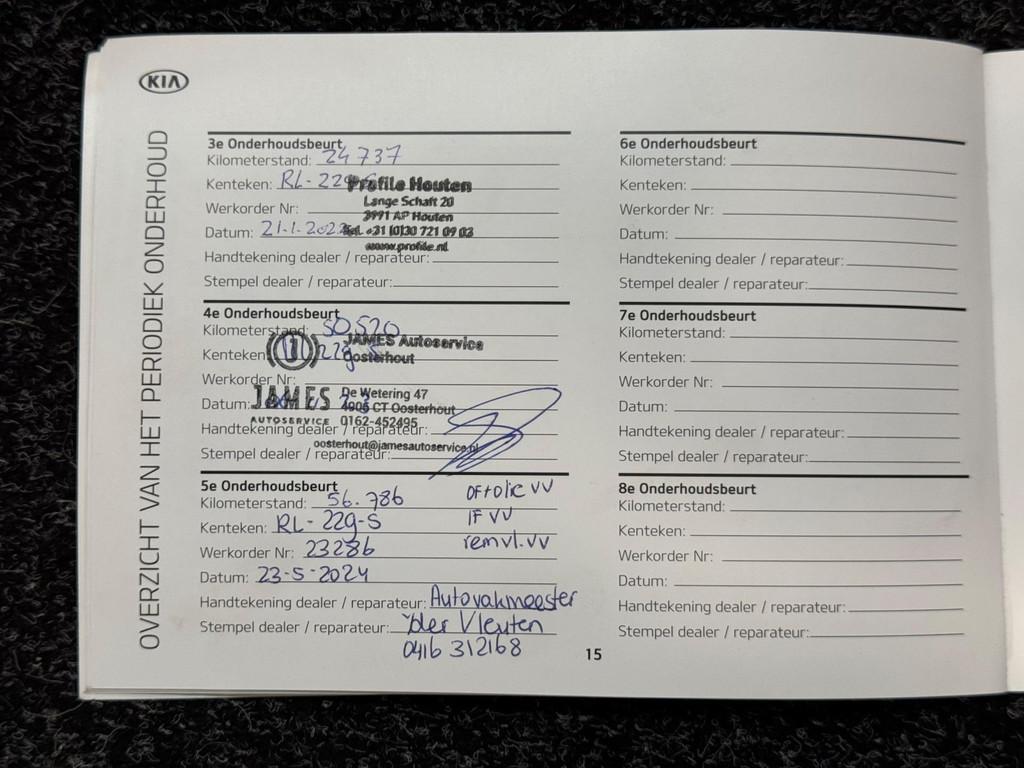 KIA
OVERZICHT VAN HET PERIODIEK ONDERHOUD
3e Onderhoudsbeurt
Kilometerstand: 24 737
Kenteken: RL-229-S
Profile Houten
Lange Schaft 20
Werkorder Nr:
3991 AP Houten
Datum: 21-1-202
Tel. +31 (0)30 721 09 03
www.profile.nl
Handtekening dealer / reparateur:
Stempel dealer / reparateur:
4e Onderhoudsbeurt
Kilometerstand: 50520
JAMES Autoservice
Kenteken:
Oosterhout
Werkorder Nr:
JAMES
AUTOSERVICE
De Wetering 47
Datum:
4906 CT Oosterhout
0162-452495
Handtekening dealer / reparateur:
oosterhout@jamesautoservice.nl
Stempel dealer / reparateur:
5e Onderhoudsbeurt
Kilometerstand: 56.786
OF+olie VV
Kenteken: RL-229-S
IF VV
Werkorder Nr: 23286
remvl. VV
Datum: 23-5-2024
Handtekening dealer / reparateur: Autovakmeester
Stempel dealer / reparateur: v/der Vleuten
0416 312168
6e Onderhoudsbeurt
Kilometerstand:
Kenteken:
Werkorder Nr:
Datum:
Handtekening dealer / reparateur:
Stempel dealer / reparateur:
7e Onderhoudsbeurt
Kilometerstand:
Kenteken:
Werkorder Nr:
Datum:
Handtekening dealer / reparateur:
Stempel dealer / reparateur:
8e Onderhoudsbeurt
Kilometerstand:
Kenteken:
Werkorder Nr:
Datum:
Handtekening dealer / reparateur:
Stempel dealer / reparateur:
15